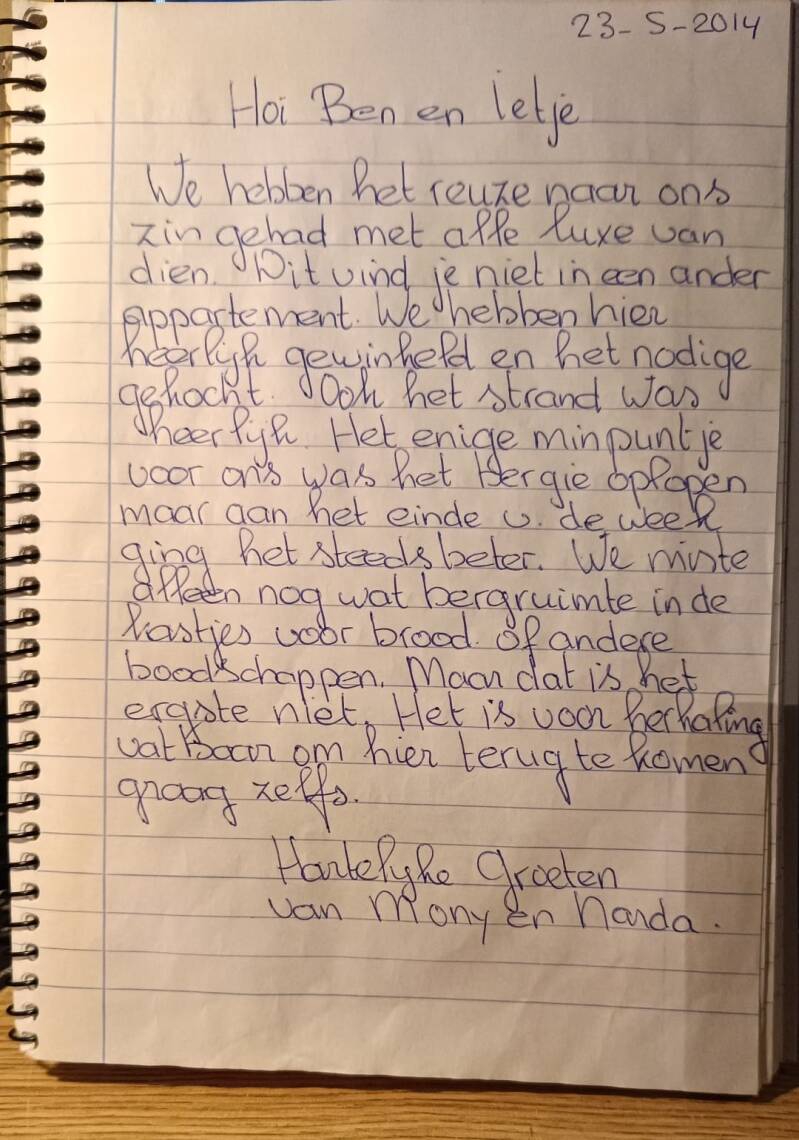 23-5-2014
Hoi Ben en Ietje
We hebben het reuze naar ons
zin gehad met alle luxe van
dien. Dit vind je niet in een ander
appartement. We hebben hier
heerlijk gewinkeld en het nodige
gekocht. Ook het strand was
heerlijk. Het enige minpuntje
voor ons was het bergie oplopen
maar aan het einde v. de week
ging het steeds beter. We miste
alleen nog wat bergruimte in de
kastjes voor brood of andere
boodschappen. Maar dat is het
ergste niet. Het is voor herhaling
vatbaar om hier terug te komen
graag zelfs.
Hartelyke Groeten
van Mony en Narda.